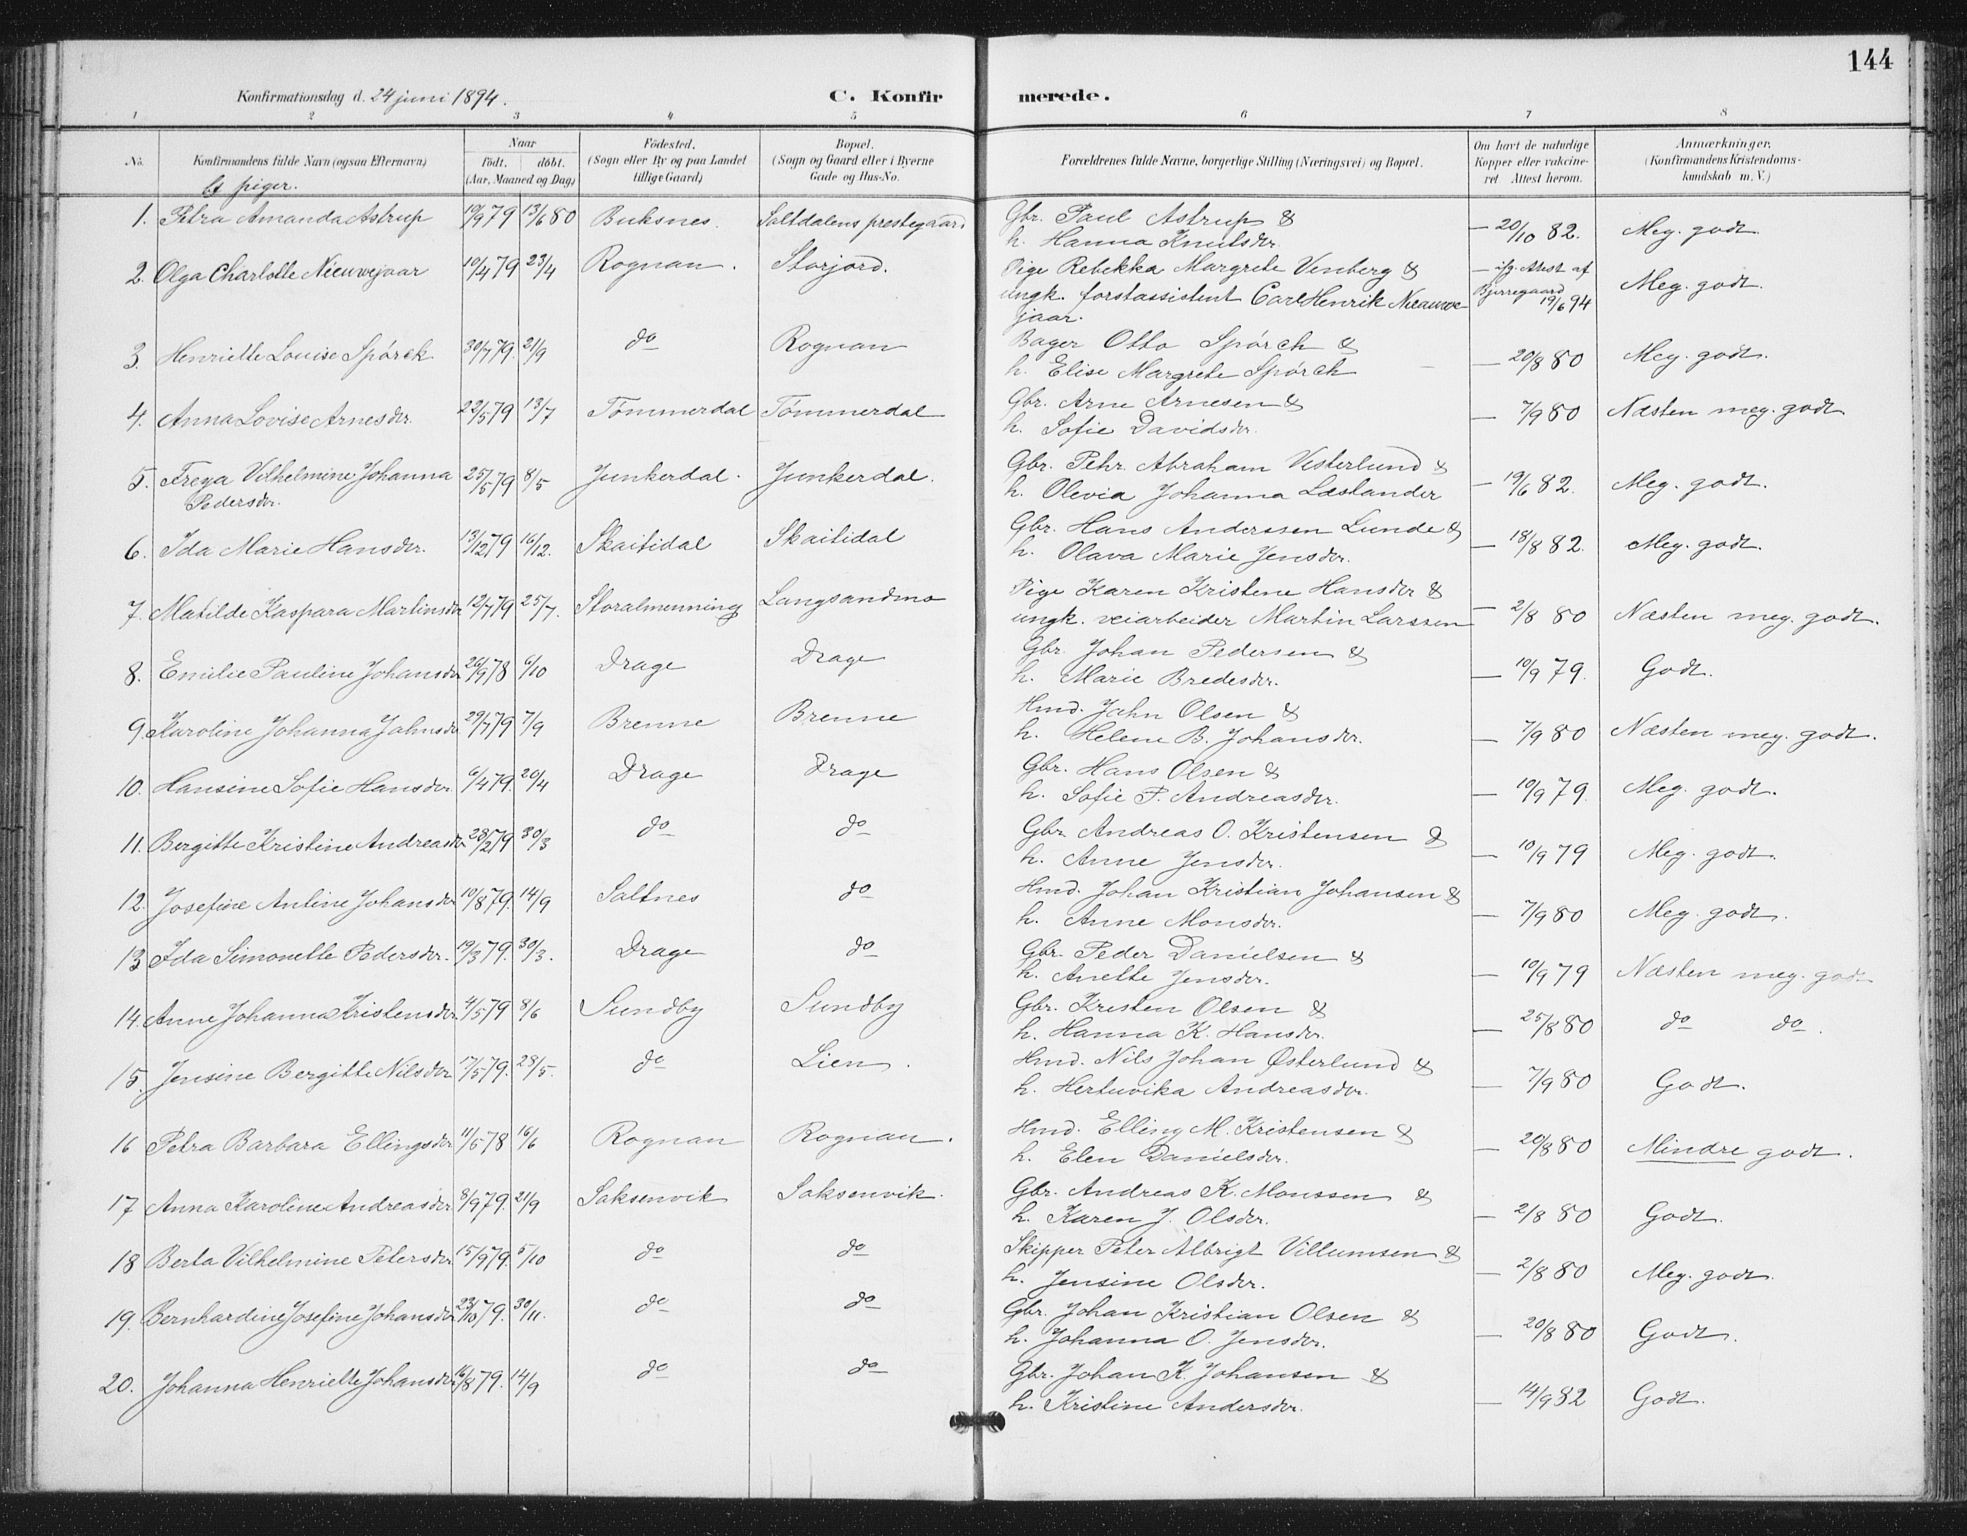 144
Konfirmationsdag d. 24 juni 1894. C. Konfirmerede.
1 2 3 4 5 6 7 8
No. Konfirmandens fulde Navn (ogsaa Efternavn) Naar Födt. döbt. (Aar, Maaned og Dag) Födested. (Sogn eller By og paa Landet tillige Gaard) Bopæl. (Sogn og Gaard eller i Byerne Gade og Hus-No. Forældrenes fulde Navne, borgerlige Stilling (Næringsvei) og Bopæl. Om havt de naturlige Kopper eller vakcineret Attest herom. Anmærkninger. (Konfirmandens Kristendomskundskab m. V.)
piger.
1. Petra Amanda Astrup 19/9 79 13/6 80 Buksnes. Saltdalens prestegaard Gbr. Paul Astrup &
h. Hanna Knutsdr. — 20/10 82. Meg. godt
2. Olga Charlotte Nieuwejaar 10/4 79 23/4 Rognan. Storjord. Pige Rebekka Margrete Venberg &
ungk. forstassistent Carl Henrik Nieauwe
jaar. — ifg. Attest af
Bjerregaard
19/6 94 Meg. godt.
3. Henriette Louise Spörck 30/7 79. 21/9 do Rognan Bager Otto Spörch &
h. Elise Margrete Spörch — 20/8 80 Meg. godt.
4. Anna Lovise Arnesdr. 22/5 79 13/7 Tömmerdal Tömmerdal Gbr. Arne Arnesen &
h. Sofie Davidsdr. — 7/9 80 Næsten meg. godt
5. Freya Vilhelmine Johanna
Pedersdr. 25/5 79 8/5 Junkerdal. Junkerdal. Gbr. Pehr Abraham Vesterlund &
h. Olevia Johanna Læstander — 19/6 82. Meg. godt.
6. Ida Marie Hansdr. 13/12 79 16/12. Skaitidal Skaitidal Gbr. Hans Anderssen Lunde &
h. Olava Marie Jensdr. — 18/8 82. Meg. godt.
7. Matilde Kaspara Martinsdr 12/7 79 25/7. Storalmenning Langsandmo Pige Karen Kristene Hansdr &
ungk. veiarbeider Martin Larssen — 2/8 80 Næsten meg. godt.
8. Emilie Pauline Johansdr 26/9 78 6/10 Drage Drage Gbr. Johan Pedersen &
h. Marie Bredesdr. — 10/9 79. Godt.
9. Karoline Johanna Jahnsdr 29/7 79 7/9 Brenne Brenne Hmd. Jahn Olsen &
h. Helene B. Johansdr. — 7/9 80 Næsten meg. godt.
10. Hansine Sofie Hansdr 6/4 79. 20/4 Drage Drage Gbr. Hans Olsen &
h. Sofie P. Andreasdr. — 10/9 79. Meg. godt.
11. Bergitte Kristine Andreasdr 28/2 79 30/3 do do Gbr. Andreas O. Kristensen &
h. Anne Jensdr. — 10/9 79 Meg. godt.
12. Josefine Antine Johansdr 10/8 79. 14/9 Saltnes do Hmd. Johan Kristian Johansen &
h. Anne Monsdr. — 7/9 80 Meg. godt.
13 Ida Simonette Pedersdr. 19/3 79. 30/3. Drage do Gbr. Peder Danielsen &
h. Anette Jensdr. — 10/9 79 Næsten meg. godt
14. Anne Johanna Kristensdr. 4/5 79 8/6 Sundby Sundby Gbr. Kristen Olsen &
h. Hanna K. Hansdr. — 25/8 80 do do.
15. Jensine Bergitte Nilsdr 17/5 79. 28/5. do Lien. Hmd. Nils Johan Østerlund &
h. Hertuvika Andreasdr. — 7/9 80 Godt.
16 Petra Barbara Ellingsdr 11/5 78 16/6 Rognan Rognan. Hmd. Elling M. Kristensen &
h. Elen Danielsdr. — 20/8 80 Mindre godt.
17 Anna Karoline Andreasdr 8/9 79. 21/9 Saksenvik Saksenvik. Gbr. Andreas K. Monssen &
h. Karen J. Olsdr. — 2/8 80 Godt.
18 Berta Vilhelmine Petersdr 15/9 79. 5/10 do do Skipper Peter Albrigt Villumsen &
h. Jensine Olsdr. — 2/8 80 Meg. godt.
19. Bernhardine Josefine Johansdr 23/10 79. 30/11. do do Gbr. Johan Kristian Olsen &
h. Johanna O. Jensdr. — 20/8 80 Godt.
20. Johanna Henriette Johansdr 16/8 79. 14/9 do do Gbr. Johan K. Johansen &
h. Kristine Andersdr. — 14/9 82 Godt.